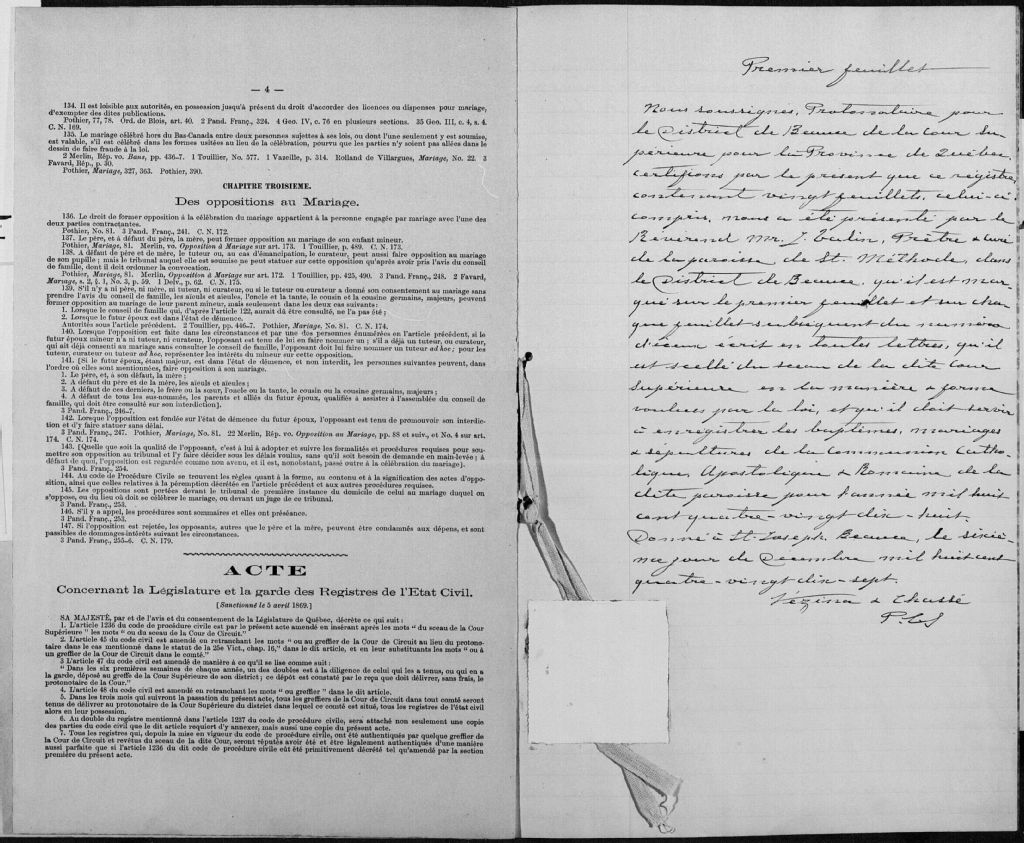 — 4 —
134. Il est loisible aux autorités, en possession jusqu'à présent du droit d'accorder des licences ou dispenses pour mariage,
d'exempter des dites publications.
Pothier, 77, 78. Ord. de Blois, art. 40. 2 Pand. Franç., 324. 4 Geo. IV, c. 76 en plusieurs sections. 35 Geo. III, c. 4, s. 4.
C. N. 169.
135. Le mariage célébré hors du Bas-Canada entre deux personnes sujettes à ses lois, ou dont l'une seulement y est soumise,
est valable, s'il est célébré dans les formes usitées au lieu de la célébration, pourvu que les parties n'y soient pas allées dans le
dessin de faire fraude à la loi.
2 Merlin, Rép. vo. Bans, pp. 436-7. 1 Touillier, No. 577. 1 Vazeille, p. 314. Rolland de Villargues, Mariage, No. 22. 3
Favard, Rép., p. 30.
Pothier, Mariage, 327, 363. Pothier, 390.
CHAPITRE TROISIEME.
Des oppositions au Mariage.
136. Le droit de former opposition à la célébration du mariage appartient à la personne engagée par mariage avec l'une des
deux parties contractantes.
Pothier, No. 81. 3 Pand. Franç., 241. C. N. 172.
137. Le père, et à défaut du père, la mère, peut former opposition au mariage de son enfant mineur.
Pothier, Mariage, 81. Merlin, vo. Opposition à Mariage sur art. 173. 1 Touillier, p. 489. C. N. 173.
138. A défaut de père et de mère, le tuteur ou, au cas d'émancipation, le curateur, peut aussi faire opposition au mariage
de son pupille ; mais le tribunal auquel elle est soumise ne peut statuer sur cette opposition qu'après avoir pris l'avis du conseil
de famille, dont il doit ordonner la convocation.
Pothier, Mariage, 81. Merlin, Opposition à Mariage sur art. 172. 1 Touillier, pp. 425, 490. 3 Pand. Franç., 248. 2 Favard,
Mariage, s. 2, § 1, No. 3, p. 59. 1 Delv., p. 62. C. N. 175.
139. S'il n'y a ni père, ni mère, ni tuteur, ni curateur, ou si le tuteur ou curateur a donné son consentement au mariage sans
prendre l'avis du conseil de famille, les aïeuls et aïeules, l'oncle et la tante, le cousin et la cousine germains, majeurs, peuvent
former opposition au mariage de leur parent mineur, mais seulement dans les deux cas suivants :
1. Lorsque le conseil de famille qui, d'après l'article 122, aurait dû être consulté, ne l'a pas été ;
2. Lorsque le futur époux est dans l'état de démence.
Autorités sous l'article précédent. 2 Touillier, pp. 446-7. Pothier, Mariage, No. 81. C. N. 174.
140. Lorsque l'opposition est faite dans les circonstances et par une des personnes énumérées en l'article précédent, si le
futur époux mineur n'a ni tuteur, ni curateur, l'opposant est tenu de lui en faire nommer un ; s'il a déjà un tuteur, ou curateur,
qui ait déjà consenti au mariage sans consulter le conseil de famille, l'opposant doit lui faire nommer un tuteur ad hoc ; pour les
tuteur, curateur ou tuteur ad hoc, représenter les intérêts du mineur sur cette opposition.
141. [Si le futur époux, étant majeur, est dans l'état de démence, et non interdit, les personnes suivantes peuvent, dans
l'ordre où elles sont mentionnées, faire opposition à son mariage.
1. Le père, et, à son défaut, la mère ;
2. A défaut du père et de la mère, les aïeuls et aïeules ;
3. A défaut de ces derniers, le frère ou la sœur, l'oncle ou la tante, le cousin ou la cousine germains, majeurs ;
4. A défaut de tous les sus-nommés, les parents et alliés du futur époux, qualifiés à assister à l'assemblée du conseil de
famille, qui doit être consulté sur son interdiction].
3 Pand. Franç., 246-7.
142. Lorsque l'opposition est fondée sur l'état de démence du futur époux, l'opposant est tenu de promouvoir son interdic-
tion et d'y faire statuer sans délai.
3 Pand. Franç., 247. Pothier, Mariage, No. 81. 22 Merlin, Rép. vo. Opposition au Mariage, pp. 88 et suiv., et No. 4 sur art.
174. C. N. 174.
143. [Quelle que soit la qualité de l'opposant, c'est à lui à adopter et suivre les formalités et procédures requises pour sou-
mettre son opposition au tribunal et l'y faire décider sous les délais voulus, sans qu'il soit besoin de demande en main-levée ; à
défaut de quoi, l'opposition est regardée comme non avenu, et il est, nonobstant, passé outre à la célébration du mariage].
3 Pand. Franç., 254.
144. Au code de Procédure Civile se trouvent les règles quant à la forme, au contenu et à la signification des actes d'oppo-
sition, ainsi que celles relatives à la péremption décrétée en l'article précédent et aux autres procédures requises.
145. Les oppositions sont portées devant le tribunal de première instance du domicile de celui au mariage duquel on
s'oppose, ou du lieu où doit se célébrer le mariage, ou devant un juge de ce tribunal.
3 Pand. Franç., 253.
146. S'il y a appel, les procédures sont sommaires et elles ont préséance.
3 Pand. Franç., 253.
147. Si l'opposition est rejetée, les opposants, autres que le père et la mère, peuvent être condamnés aux dépens, et sont
passibles de dommages-intérêts suivant les circonstances.
3 Pand. Franç., 255-6. C. N. 179.
ACTE
Concernant la Législature et la garde des Registres de l'Etat Civil.
[Sanctionné le 5 avril 1869.]
SA MAJESTÉ, par et de l'avis et du consentement de la Législature de Québec, décrète ce qui suit :
1. L'article 1236 du code de procédure civile est par le présent acte amendé en insérant après les mots " du sceau de la Cour
Supérieure " les mots " ou du sceau de la Cour de Circuit."
2. L'article 45 du code civil est amendé en retranchant les mots " ou au greffier de la Cour de Circuit au lieu du protono-
taire dans le cas mentionné dans le statut de la 25e Vict., chap. 16," dans le dit article, et en leur substituants les mots "ou à
un greffier de la Cour de Circuit dans le comté."
3 L'article 47 du code civil est amendé de manière à ce qu'il se lise comme suit :
" Dans les six premières semaines de chaque année, un des doubles est à la diligence de celui qui les a tenus, ou qui en a
la garde, déposé au greffe de la Cour Supérieure de son district ; ce dépôt est constaté par le reçu que doit délivrer, sans frais, le
protonotaire de la Cour."
4. L'article 48 du code civil est amendé en retranchant les mots " ou greffier " dans le dit article.
5. Dans les trois mois qui suivront la passation du présent acte, tous les greffiers de la Cour de Circuit dans tout comté seront
tenus de délivrer au protonotaire de la Cour Supérieure du district dans lequel ce comté est situé, tous les registres de l'état civil
alors en leur possession.
6. Au double du registre mentionné dans l'article 1237 du code de procédure civile, sera attaché non seulement une copie
des parties du code civil que le dit article requiert d'y annexer, mais aussi une copie du présent acte.
7. Tous les registres qui, depuis la mise en vigueur du code de procédure civile, ont été authentiqués par quelque greffier de
la Cour de Circuit et revêtus du sceau de la dite Cour, seront réputés avoir été et être légalement authentiqués d'une manière
aussi parfaite que si l'article 1236 du dit code de procédure civile eût été primitivement décrété tel qu'amendé par la section
première du présent acte.
Premier feuillet
Nous soussignés, Protonotaire pour
le District de Beauce de la Cour Su-
périeure pour la Province de Québec,
certifions par le présent que ce registre
contenant vingt feuillets, celui-ci
compris, nous a été présenté par le
Révérend Mr. J. Prêtre & Curé
de la paroisse de St. Méthode, dans
le District de Beauce, qu'il est mar-
qué sur le premier feuillet et sur cha-
que feuillet subséquent du numéro
d'iceux écrit en toutes lettres, qu'il
est scellé du sceau de la dite Cour
Supérieure en la manière & forme
voulues par la loi, et qu'il doit servir
à enregistrer les baptêmes, mariages
& sépultures de la communion Catho-
lique, Apostolique & Romaine de la
dite paroisse pour l'année mil huit
cent quatre-vingt dix-huit.
Donné à St. Joseph, Beauce, le sixiè-
me jour de Decembre mil huit cent
quatre-vingt dix-sept.
Vézina & Chassé
P.C.S